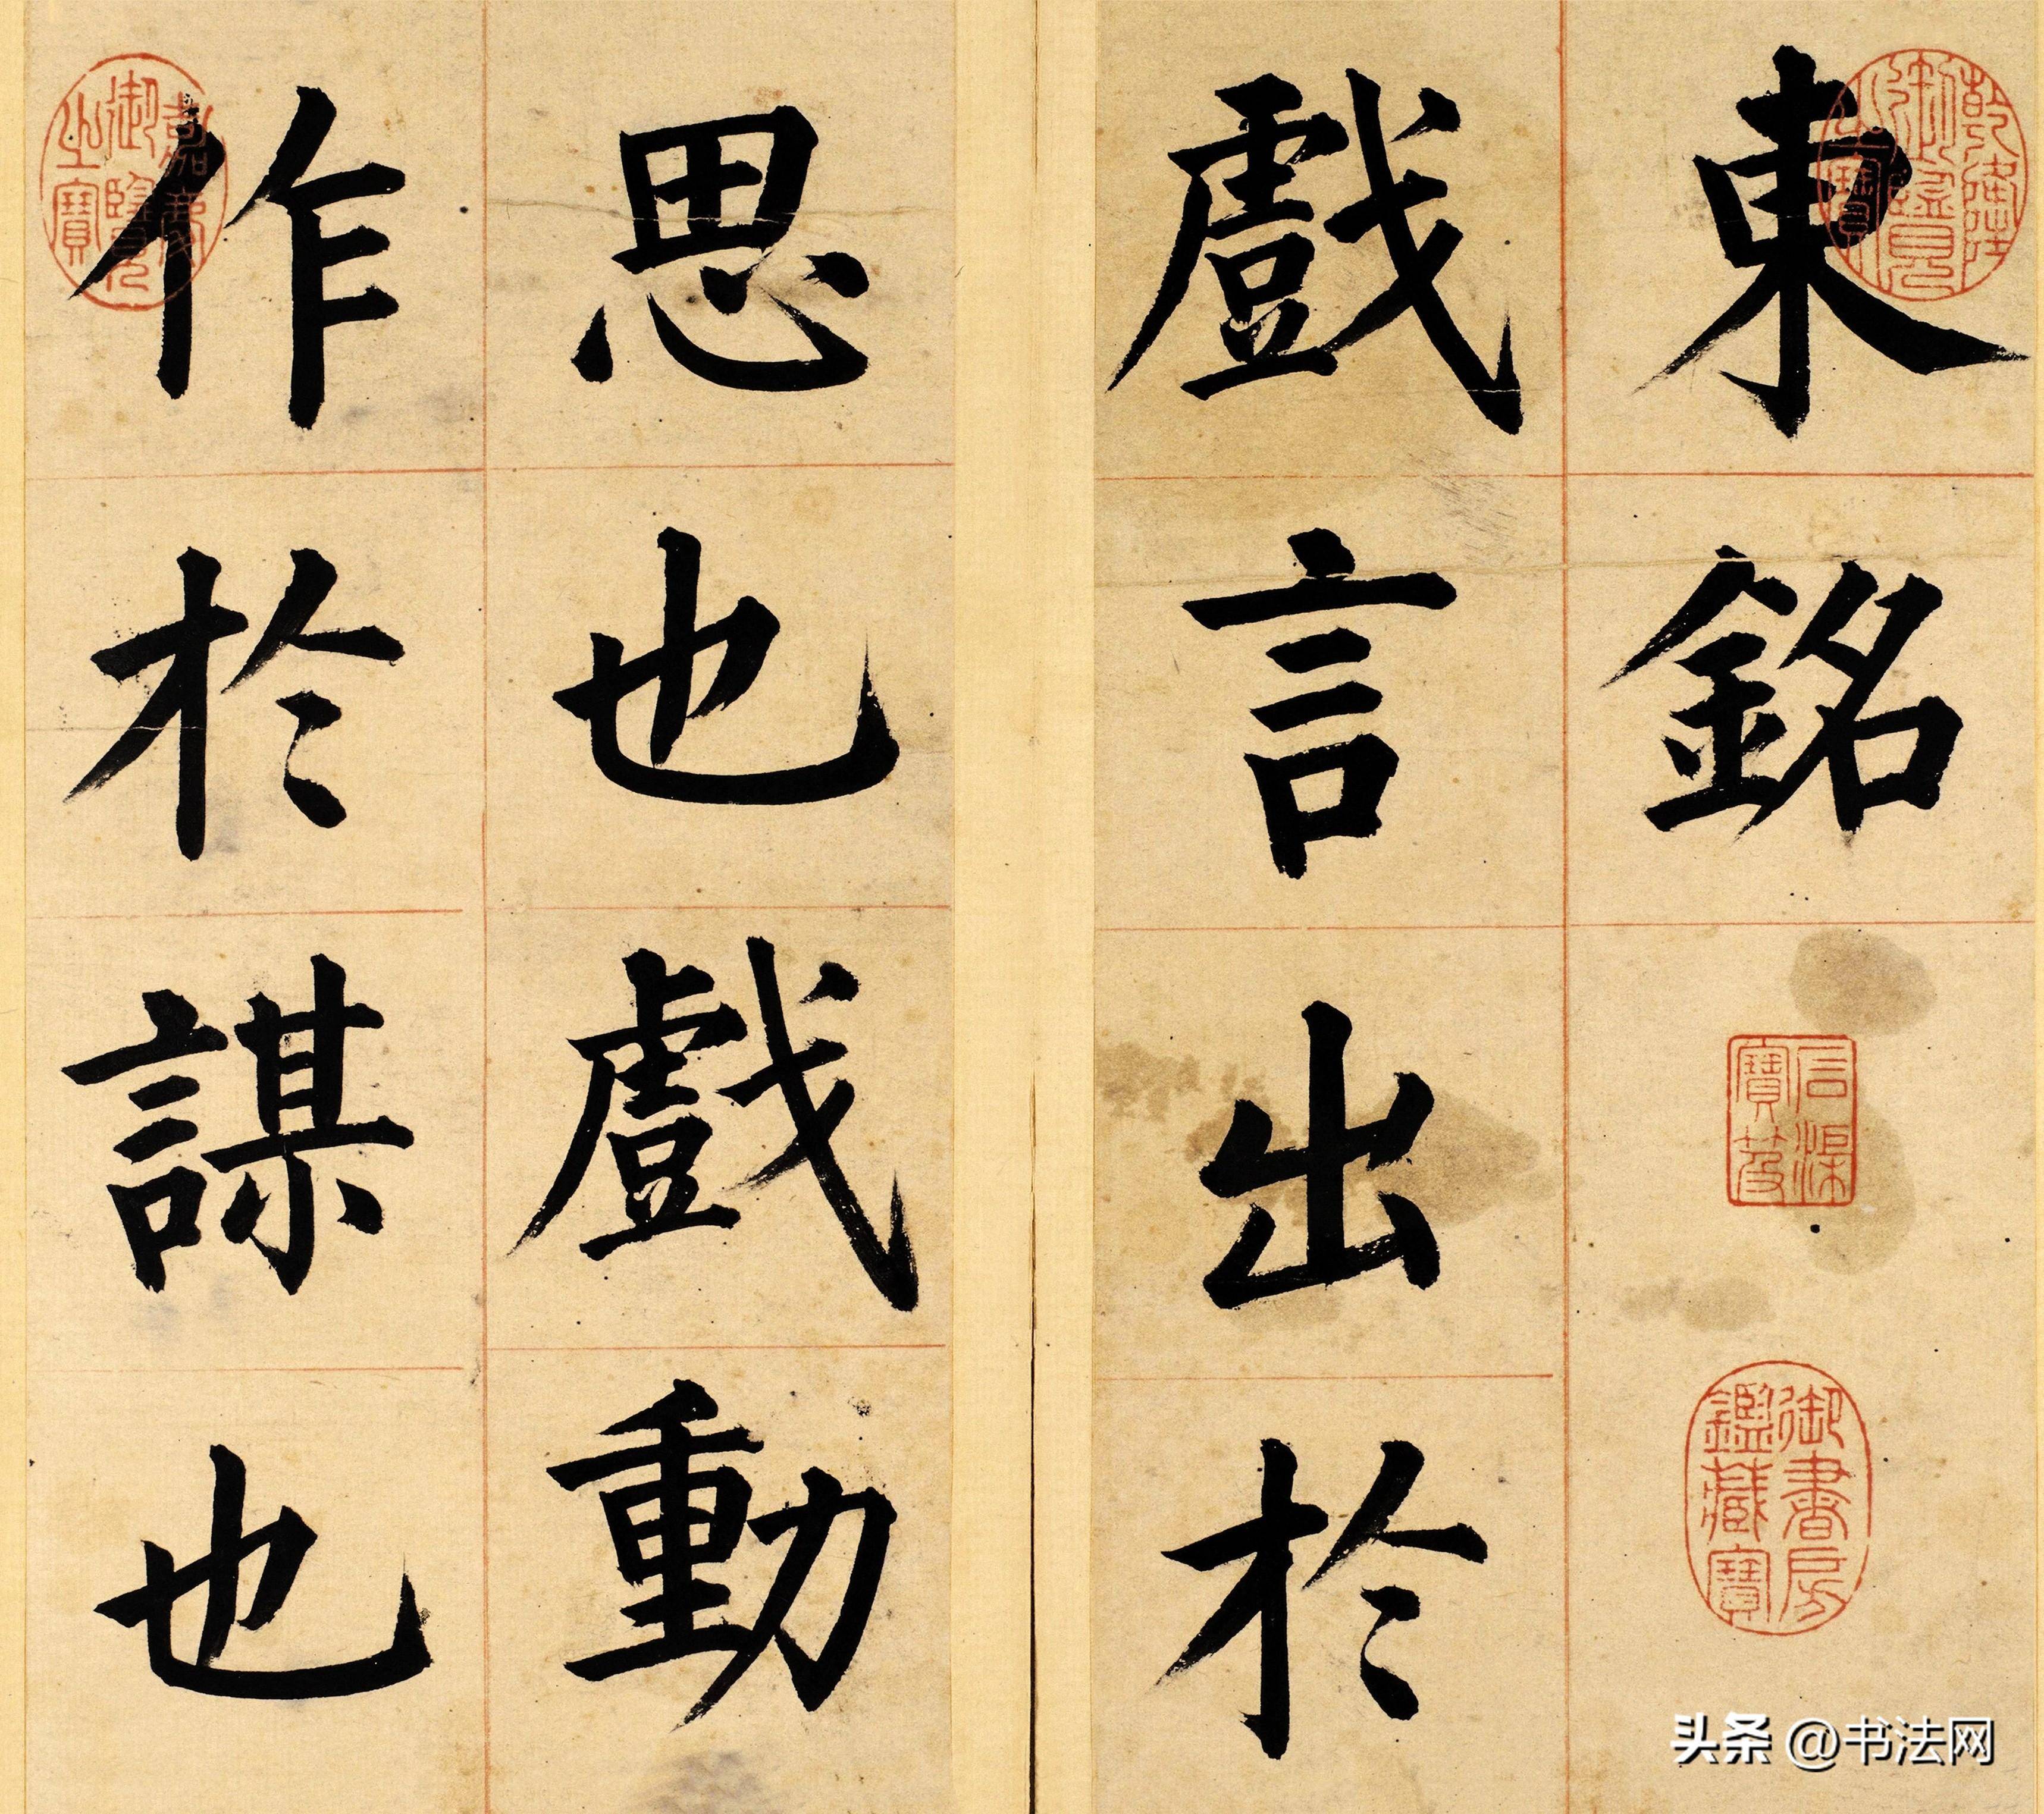 東銘
戲言出於
思也戲動
作於謀也
乾隆御覽之寶
石渠寶笈
御書房鑑藏寶
嘉慶御覽之寶
头条 @书法网